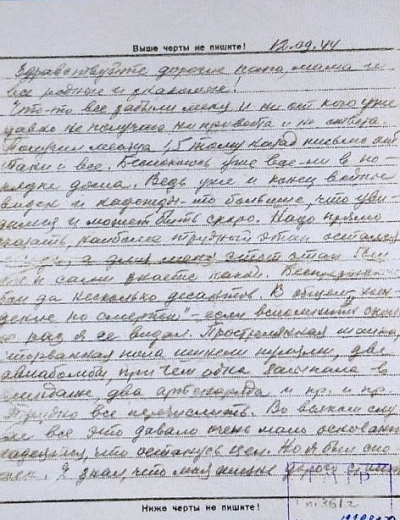 Выше черты не пишите! 12.09.44
Здравствуйте дорогие папа, мама и
все родные и знакомые.
Что-то все забыли меня и ни от кого уже
давно не получаю ни привета и ни ответа.
Получил месяца 1,5 тому назад письмо от
Таси и все. Беспокоюсь уже все-ли в по-
рядке дома. Ведь уже и конец войны
виден и надежды-то больше, что уви-
димся и может быть скоро. Надо прямо
сказать, наиболее трудный этап остался
а для меня этот этап
и сами знаете какой.
да несколько десантов. В общем
со смертью" - если вспомнить сколь
ко раз я ее видал. Простреленная шапка,
пола шинели пулями, две
авиабомбы, при чем одна
два артснаряда и пр. и пр.
Трудно все перечислить. Во всяком слу
чае все это давало очень мало оснований
надеяться, что останусь цел. Но я был спо
коен. Я знал, что моя жизнь дорого
Ниже черты не пишите!